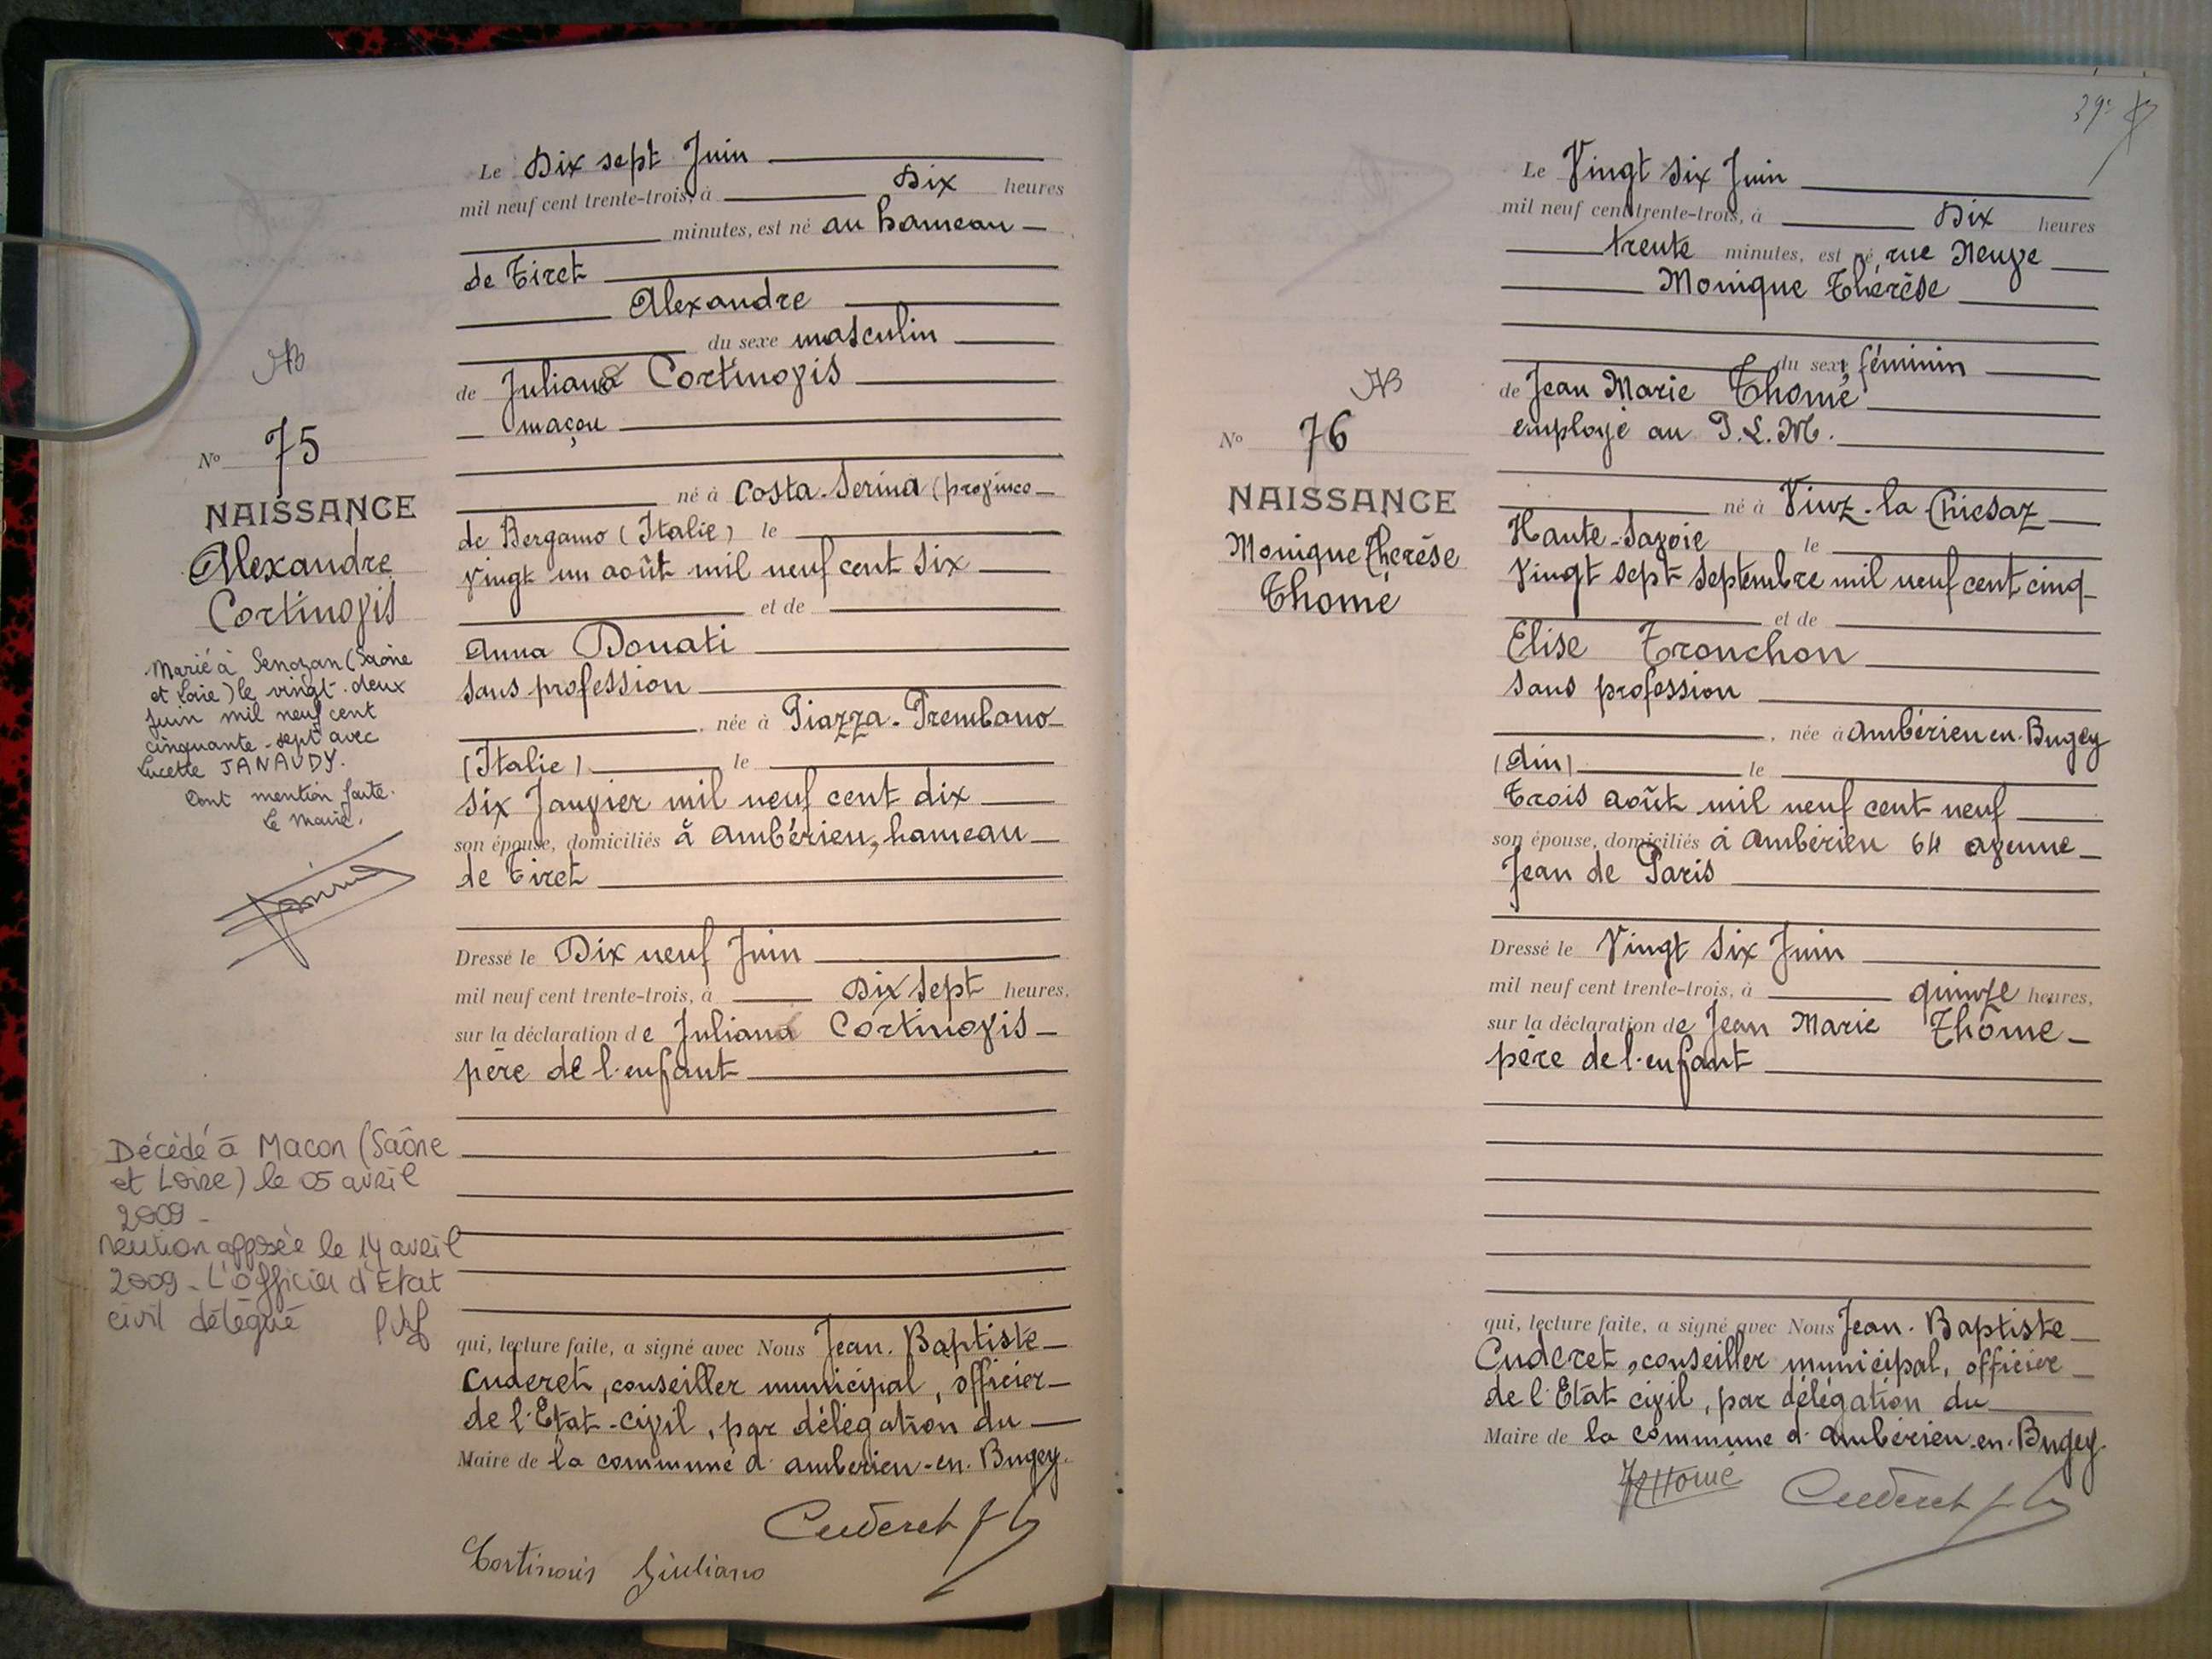 Le Dix sept Juin
mil neuf cent trente-trois, à Dix heures
minutes, est né au hameau
de Tiret
Alexandre
du sexe masculin
de Juliano Cortinovis
maçon
né à Costa-Serina (province
de Bergamo (Italie) le
vingt un août mil neuf cent six
et de
Anna Donati
sans profession
, née à Piazza-Brembano
(Italie) le
six Janvier mil neuf cent dix
son épouse, domiciliés à Ambérieu, hameau
de Tiret
Dressé le Dix neuf Juin
mil neuf cent trente-trois, à Dix sept heures,
sur la déclaration de Juliano Cortinovis
père de l'enfant
qui, lecture faite, a signé avec Nous Jean-Baptiste
Cuderet, conseiller municipal, officier
de l'Etat-civil, par délégation du
Maire de la commune d'Ambérieu-en-Bugey.
Cuderet
Cortinovis Giuliano
N° 75
NAISSANCE
Alexandre
Cortinovis
Marié à Senozan (Saône
et Loire) le vingt-deux
juin mil neuf cent
cinquante-sept avec
Lucette JANAUDY.
Dont mention faite.
Le Maire,
Décédé à Macon (Saône
et Loire) le 05 avril
2009 -
Mention apposée le 14 avril
2009 - L'officier d'Etat
civil délégué
Le Vingt six Juin
mil neuf cent trente-trois, à Dix heures
trente minutes, est né rue Neuve
Monique Thérèse
du sexe féminin
de Jean Marie Thomé
employé au P.L.M.
né à Viuz-la Chiesaz
Haute-Savoie le
Vingt sept septembre mil neuf cent cinq
et de
Elise Tronchon
sans profession
, née à Ambérieu en-Bugey
(Ain) le
Trois août mil neuf cent neuf
son épouse, domiciliés à Ambérieu 64 avenue
Jean de Paris
Dressé le Vingt six Juin
mil neuf cent trente-trois, à quinze heures,
sur la déclaration de Jean Marie Thôme
père de l'enfant
qui, lecture faite, a signé avec Nous Jean-Baptiste
Cuderet, conseiller municipal, officier
de l'Etat civil, par délégation du
Maire de la commune d'Ambérieu-en-Bugey.
JThomé Cuderet
N° 76
NAISSANCE
Monique Therèse
Thomé